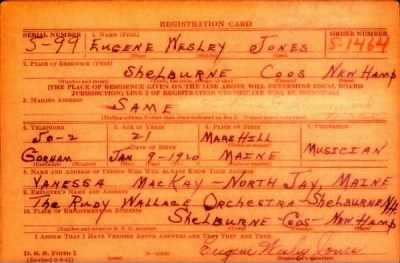 REGISTRATION CARD
SERIAL NUMBER 1. NAME (Print) ORDER NUMBER
S-99 EUGENE WESLEY JONES S-1464
(First) (Middle) (Last)
2. PLACE OF RESIDENCE (Print)
SHELBURNE COOS NEW HAMP
[THE PLACE OF RESIDENCE GIVEN ON THE LINE ABOVE WILL DETERMINE LOCAL BOARD
JURISDICTION; LINE 2 OF REGISTRATION CERTIFICATE WILL BE IDENTICAL]
3. MAILING ADDRESS
SAME
4. TELEPHONE 5. AGE IN YEARS 6. PLACE OF BIRTH 7. OCCUPATION
50-2 21 MARS HILL
DATE OF BIRTH MUSICIAN
GORHAM JAN 9-1920 MAINE
8. NAME AND ADDRESS OF PERSON WHO WILL ALWAYS KNOW YOUR ADDRESS
VANESSA MACKAY-NORTH JAY, MAINE
9. EMPLOYER'S NAME AND ADDRESS
THE RUDY WALLACE ORCHESTRA-SHELBURNE N.H.
10. PLACE OF EMPLOYMENT OR BUSINESS
SHELBURNE-COOS-NEW HAMP
I AFFIRM THAT I HAVE VERIFIED ABOVE ANSWERS AND THAT THEY ARE TRUE.
D. S. S. Form 1 Eugene Wesley Jones